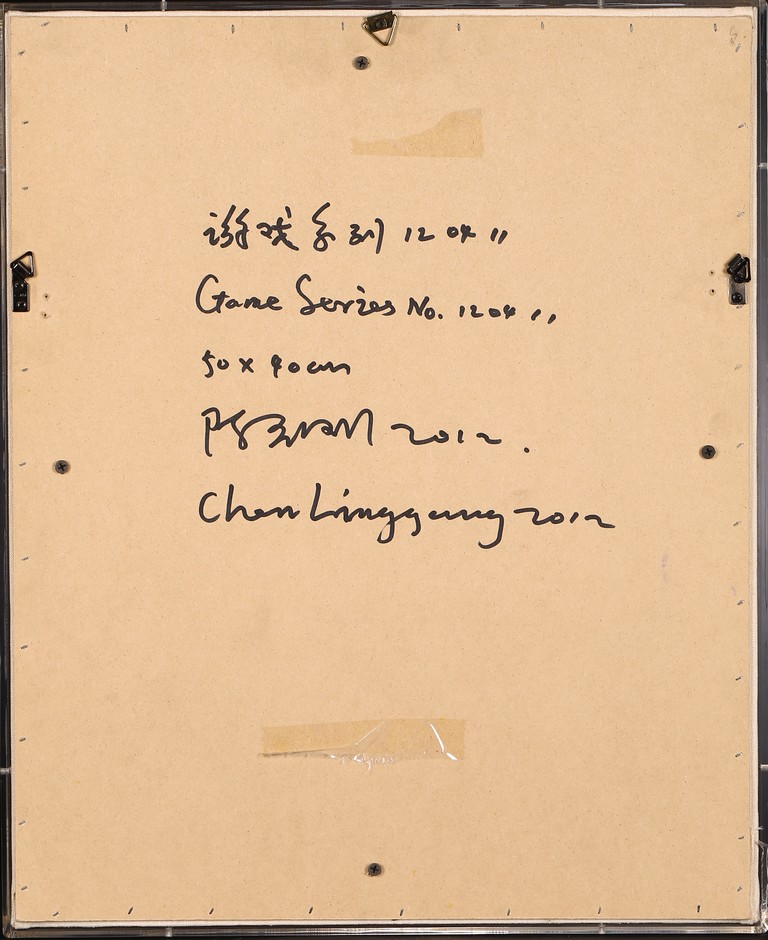 游戏系列 120411
Game Series No. 120411
50 x 40cm
陈灵刚 2012.
Chen Linggang 2012